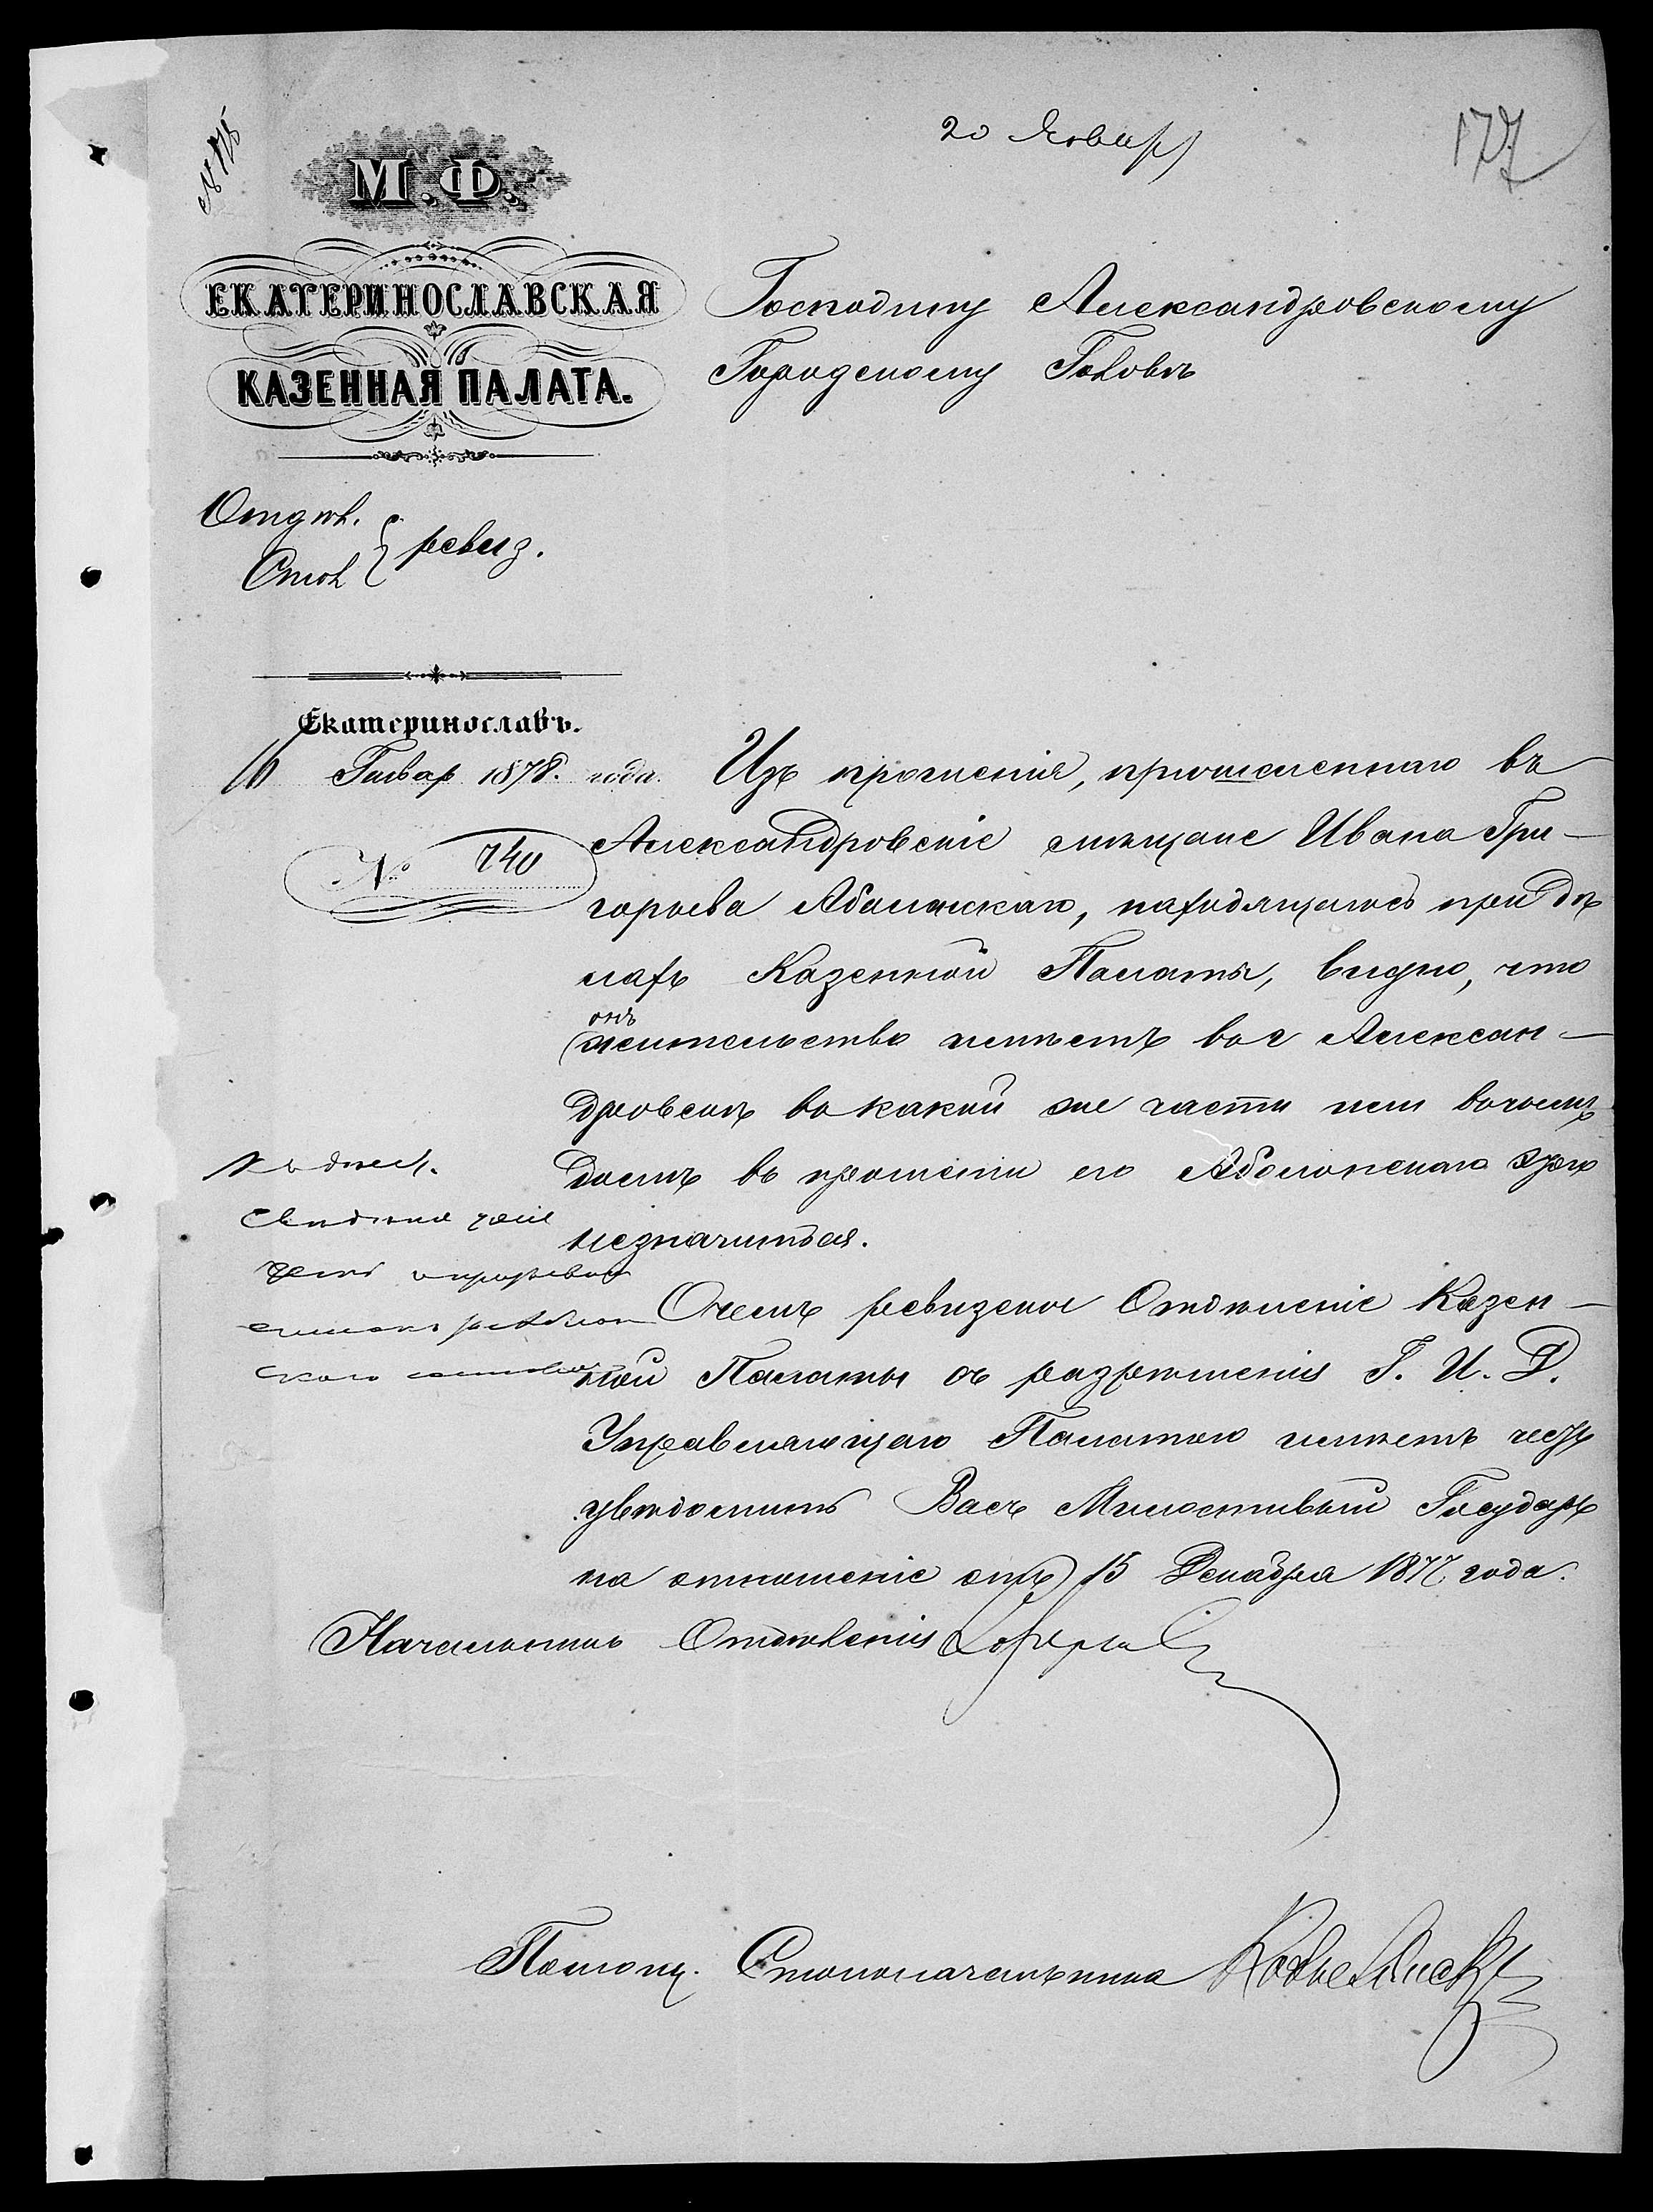 20 Январ
177
М.Ф.
ЕКАТЕРИНОСЛАВСКАЯ
КАЗЕННАЯ ПАЛАТА.
Господину Александровскому
Городскому Головѣ
Отдѣл.
Стол
ревиз.
Екатеринославъ.
16 Генвар 1878. года.
№ 740
Изъ прошенія, причисленнаго въ
Александровскіе мѣщане Ивана Гри-
горьева находящагося при дѣ
лахъ Казенной Палаты, видно, что
онъ
жительство имѣетъ въ г Алексан-
дровскѣ въ какой же части или
въ прошеніи его
незначится.
Очемъ ревизское Отдѣленіе Казен-
ной Палаты съ разрѣшенія Г. И. Д.
Управляющаго Палатою имѣетъ честь
увѣдомить Васъ Милостивый Государь
на отношеніе отъ 15 Декабря 1877 года.
Начальникъ Отдѣленія
Помощ. Столоначальника